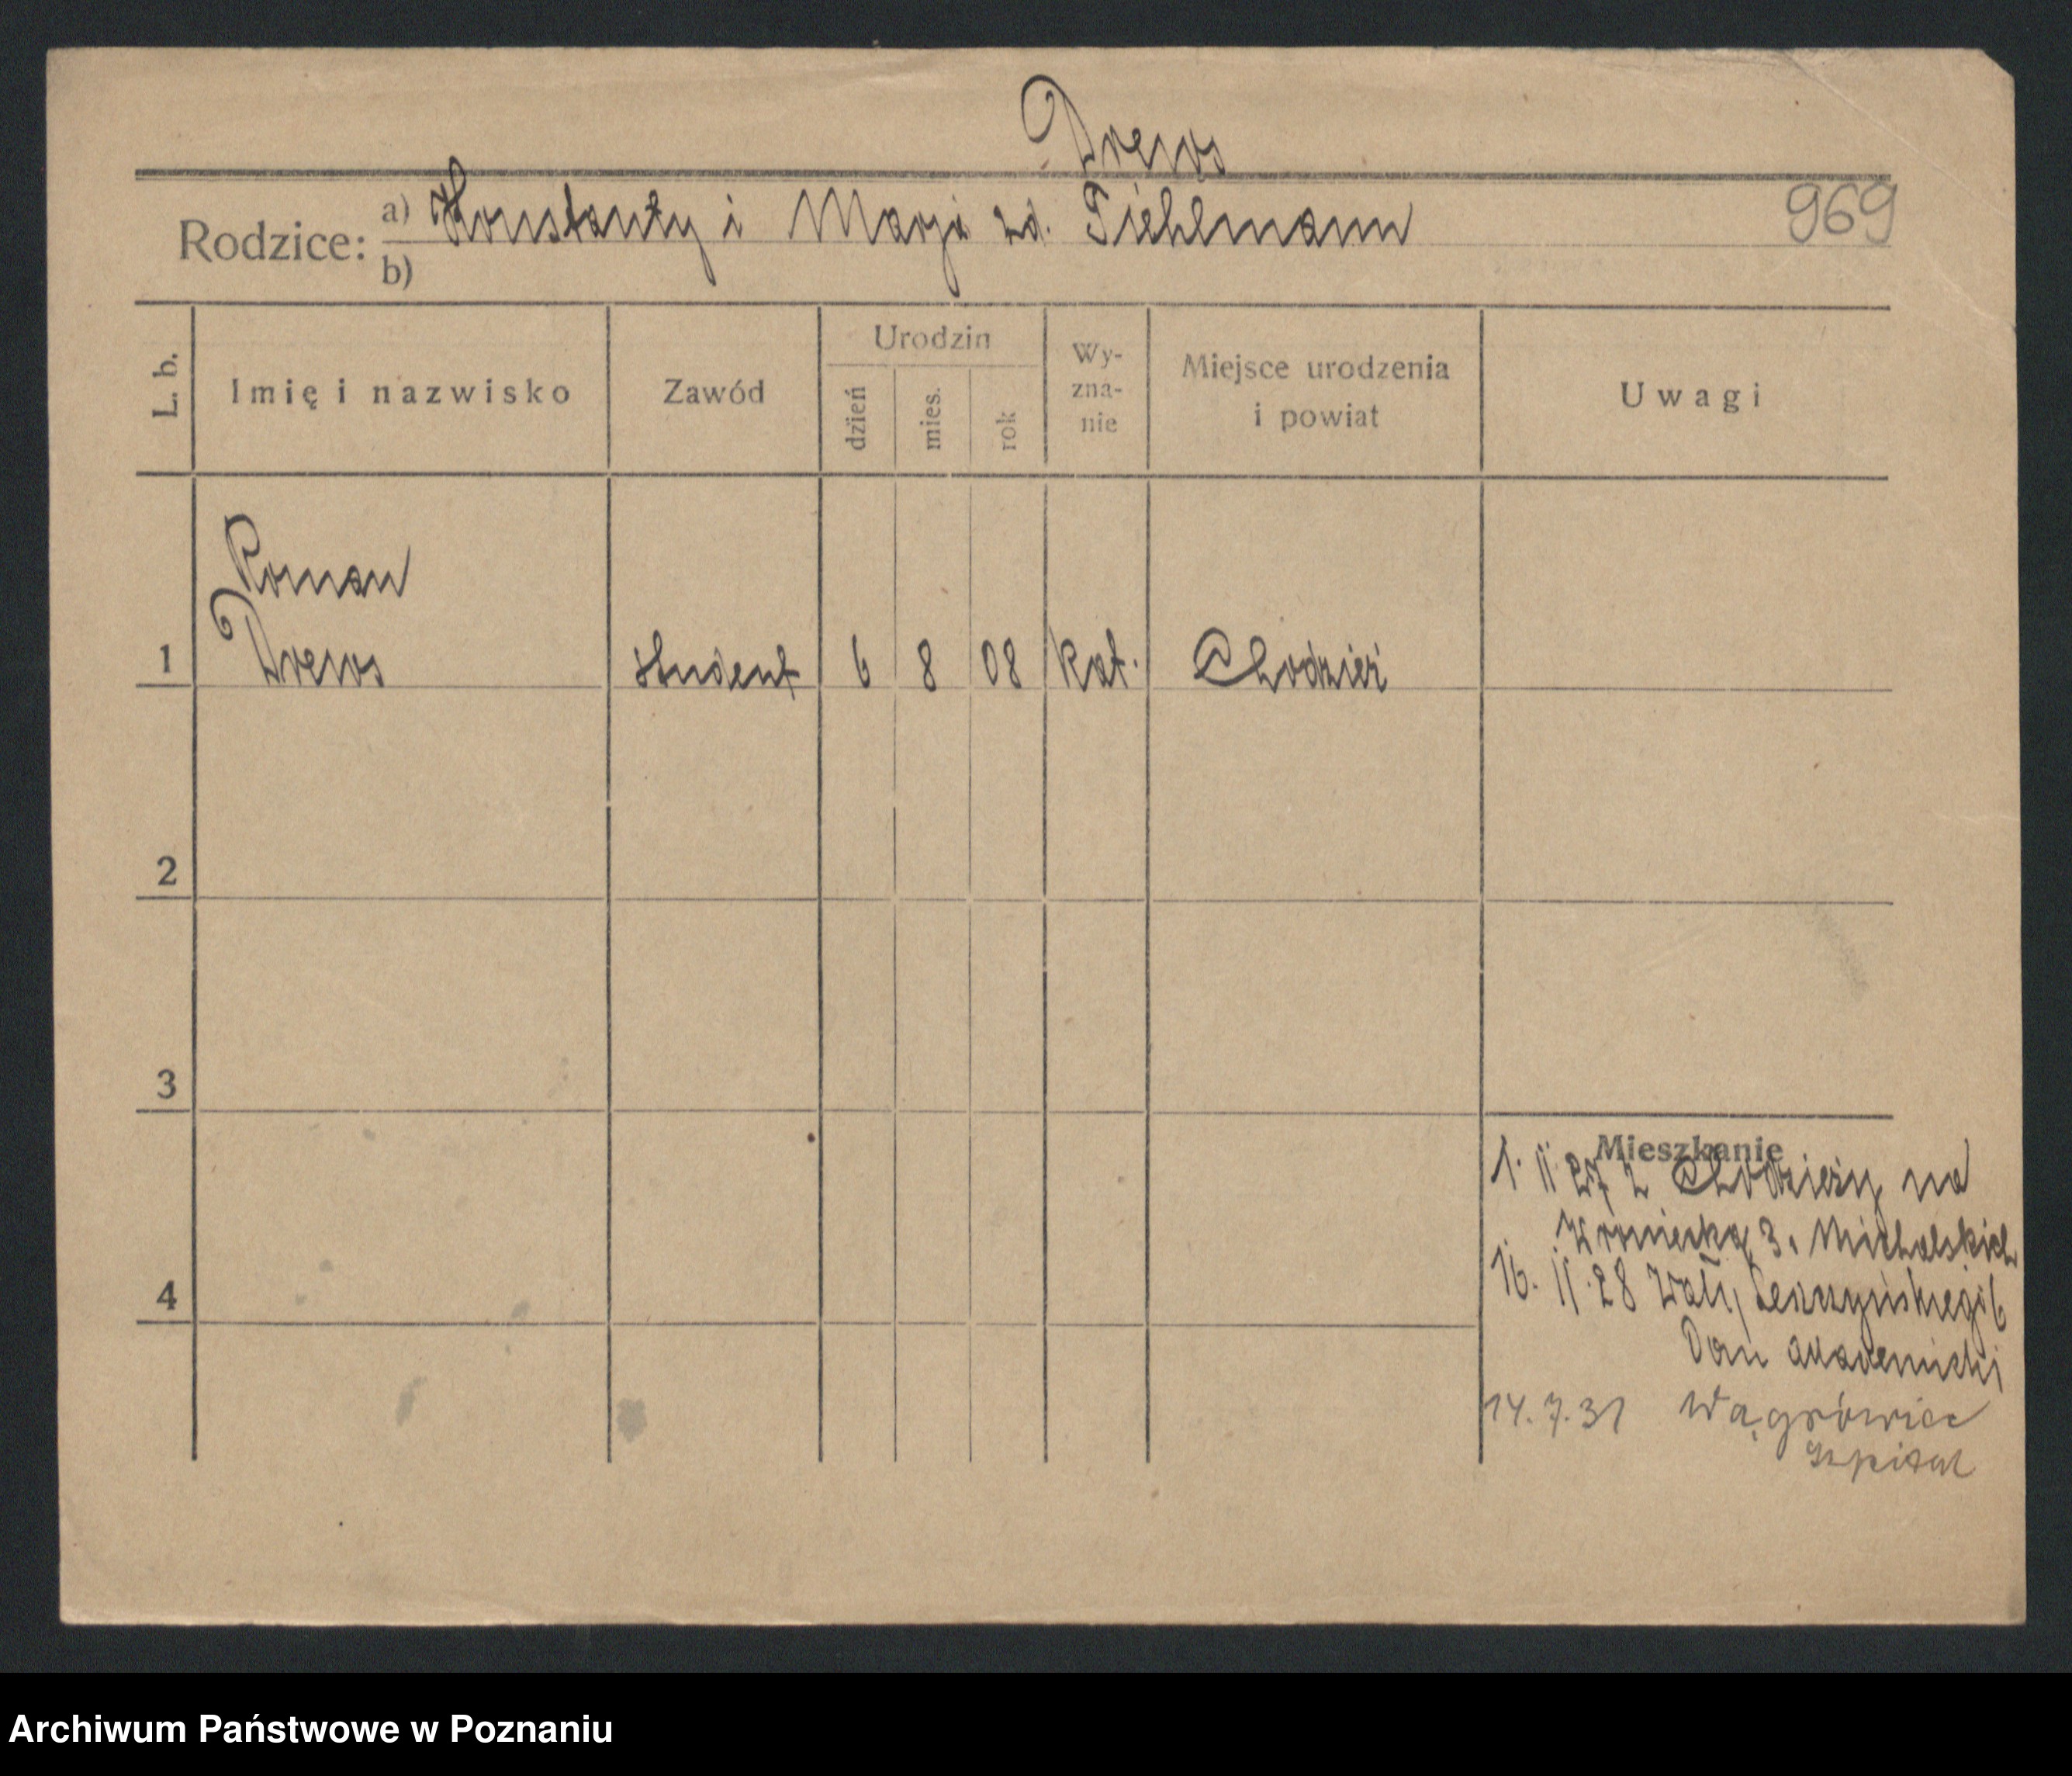 Drews
Rodzice: a) Konstanty i Marja zd. Tiehlmann
969
b)
L. b.
Imię i nazwisko
Zawód
Urodzin
dzień
mies.
rok
Wy-
zna-
nie
Miejsce urodzenia
i powiat
Uwagi
Roman
1 Drews student 6 8 08 kat. Chodzież
2
3
Mieszkanie
1. 11 27 z Chodzieży na
Wroniecką 3. Michalskich
4
16. 11. 28 Wały Leszczyńskiego 6
Dom akademicki
14.7.31 Wągrówiec
szpital
Archiwum Państwowe w Poznaniu